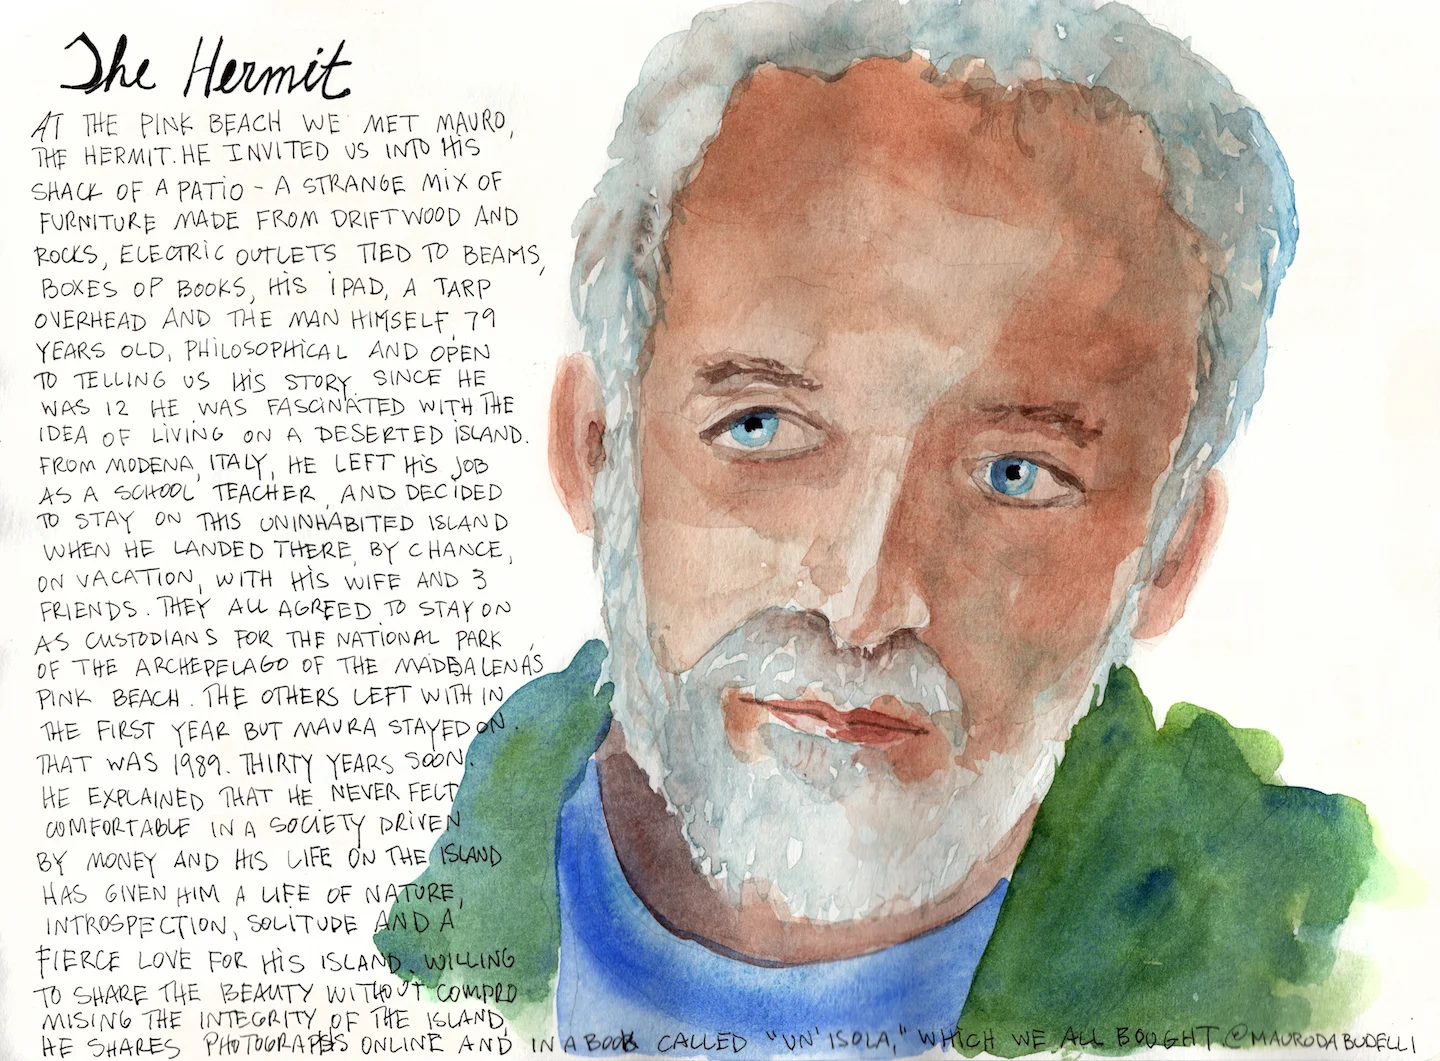 The Hermit
AT THE PINK BEACH WE MET MAURO,
THE HERMIT. HE INVITED US INTO HIS
SHACK OF A PATIO - A STRANGE MIX OF
FURNITURE MADE FROM DRIFTWOOD AND
ROCKS, ELECTRIC OUTLETS TIED TO BEAMS,
BOXES OF BOOKS, HIS iPAD, A TARP
OVERHEAD AND THE MAN HIMSELF, 79
YEARS OLD, PHILOSOPHICAL AND OPEN
TO TELLING US HIS STORY. SINCE HE
WAS 12 HE WAS FASCINATED WITH THE
IDEA OF LIVING ON A DESERTED ISLAND.
FROM MODENA, ITALY, HE LEFT HIS JOB
AS A SCHOOL TEACHER, AND DECIDED
TO STAY ON THIS UNINHABITED ISLAND
WHEN HE LANDED THERE, BY CHANCE,
ON VACATION, WITH HIS WIFE AND 3
FRIENDS. THEY ALL AGREED TO STAY ON
AS CUSTODIANS FOR THE NATIONAL PARK
OF THE ARCHEPELAGO OF THE MADDALENA'S
PINK BEACH. THE OTHERS LEFT WITH IN
THE FIRST YEAR BUT MAURA STAYED ON.
THAT WAS 1989. THIRTY YEARS SOON.
HE EXPLAINED THAT HE NEVER FELT
COMFORTABLE IN A SOCIETY DRIVEN
BY MONEY AND HIS LIFE ON THE ISLAND
HAS GIVEN HIM A LIFE OF NATURE,
INTROSPECTION, SOLITUDE AND A
FIERCE LOVE FOR HIS ISLAND. WILLING
TO SHARE THE BEAUTY WITHOUT COMPRO
MISING THE INTEGRITY OF THE ISLAND,
HE SHARES PHOTOGRAPHS ONLINE AND IN A BOOK CALLED "UN' ISOLA," WHICH WE ALL BOUGHT @MAURODABUDELLI